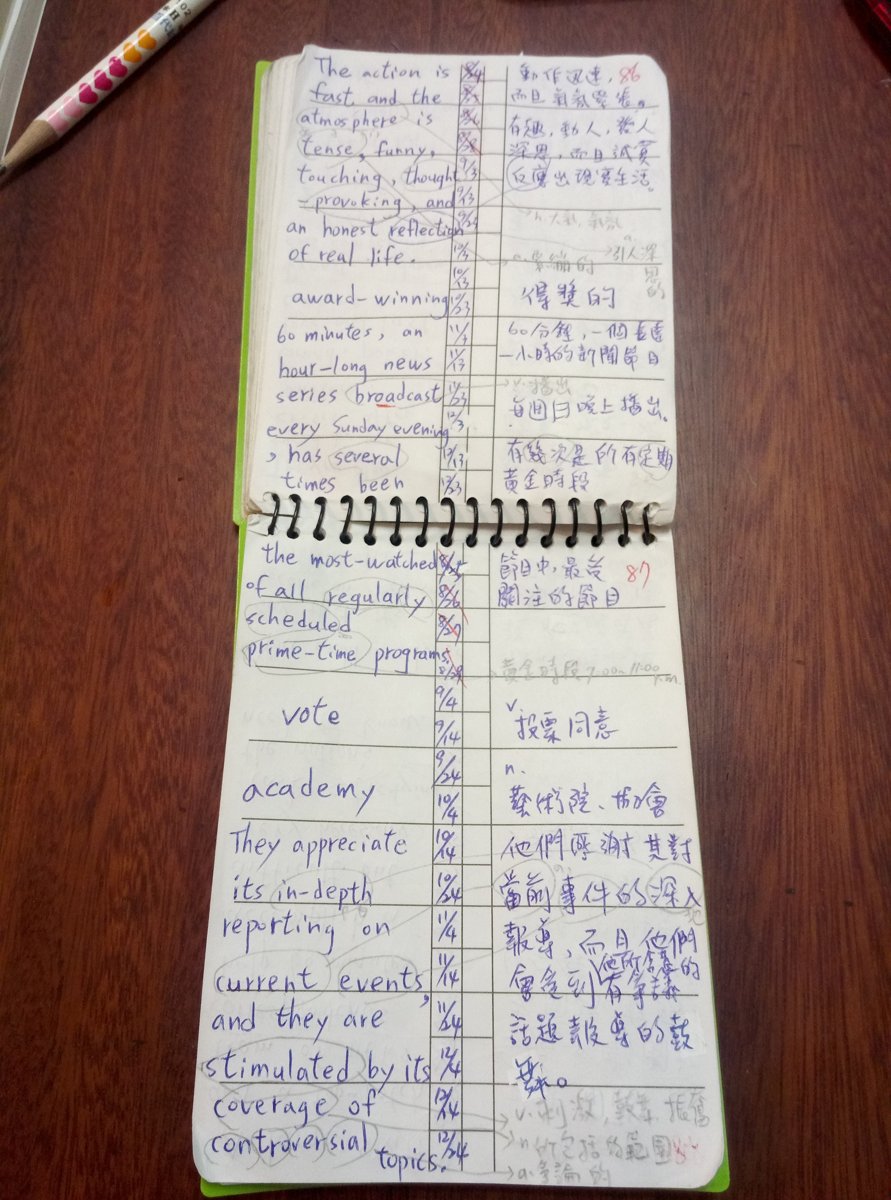 The action is
fast and the
atmosphere is
tense, funny,
touching, thought
-provoking, and
an honest reflection
of real life.
award-winning
60 minutes, an
hour-long news
series broadcast
every Sunday evening
, has several
times been
8/4
9/3
9/13
9/23
10/3
10/13
10/23
11/3
11/13
11/23
12/3
12/13
12/23
動作迅速, 86
而且氣氛緊張。
有趣,動人,發人
深思,而且誠實
反應出現實生活。
n.大氣,氣氛
a.緊繃的
引人深
思的
得獎的
60分鐘,一個長達
一小時的新聞節目
v.播出
每週日晚上播出。
有幾次是所有定期
黃金時段
the most-watched
of all regularly
scheduled
prime-time programs
vote
academy
They appreciate
its in-depth
reporting on
current events,
and they are
stimulated by its
coverage of
controversial
topics.
8/25
8/26
8/27
9/4
9/14
9/24
10/4
10/14
10/24
11/4
11/14
11/24
12/4
12/14
12/24
節目中,最受 87
關注的節目
黃金時段 7:00~11:00
p.m.
v.
投票同意
n.
藝術院、協會
他們感謝其對
當前事件的深入
報導,而且他們
會受到
有爭議
話題報導的鼓
舞。
v.刺激,鼓舞,振奮
n.所包括的範圍
a.爭論的